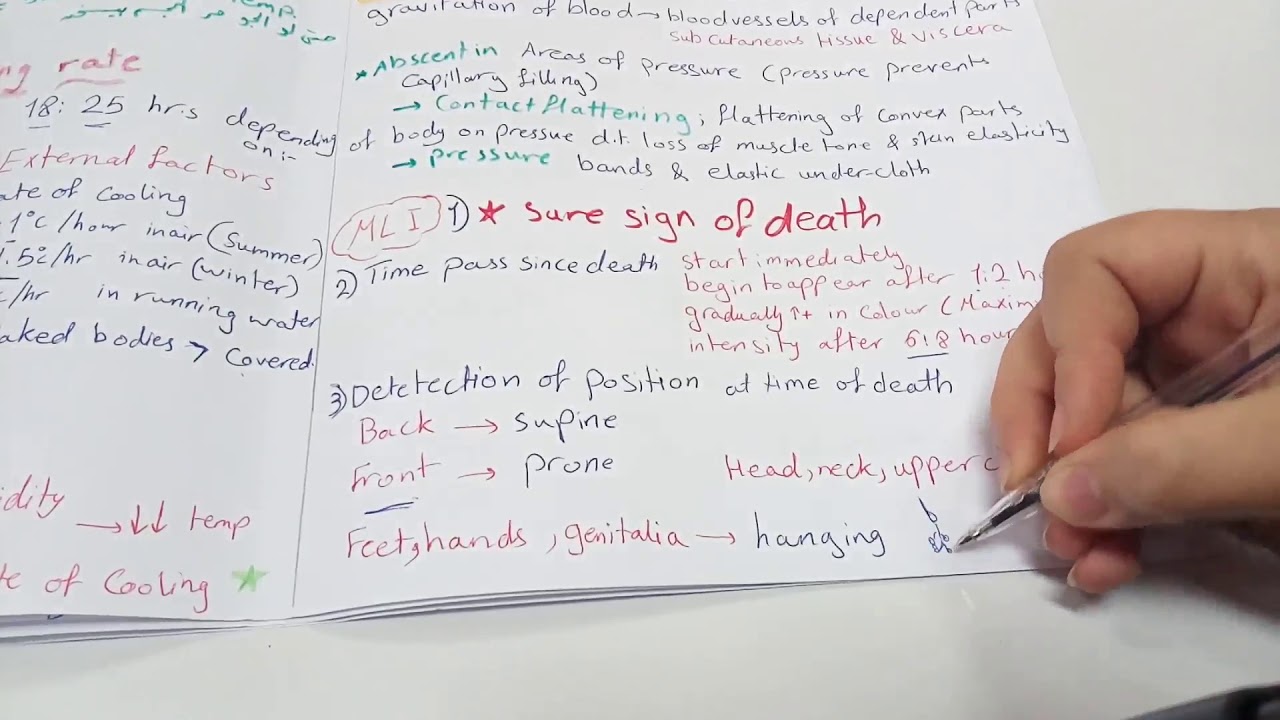 temp.
حتى لو
ng rate
18: 25 hrs depending
on:-
External factors
ate of cooling
1°C /hour in air (summer)
.5°c/hr in air (winter)
/hr in running water
aked bodies → Covered.
idity
→ ↓↓ temp
te of Cooling ★
gravitation of blood → blood vessels of dependent parts
subcutaneous tissue & viscera
★ Abscent in Areas of pressure (pressure prevents
Capillary filling)
→ Contact flattening; flattening of convex parts
of body on pressue d.t. loss of muscle tone & skin elasticity
→ pressure bands & elastic under-cloth
MLI 1) ★ Sure sign of death
2) Time pass since death start immediately
begin to appear after 1:2 h
gradually ↑+ in colour (Maxim
intensity after 6:8 hour
3) Detetection of position at time of death
Back → supine
Front → prone
Head, neck, upper c
Feet, hands, genitalia → hanging